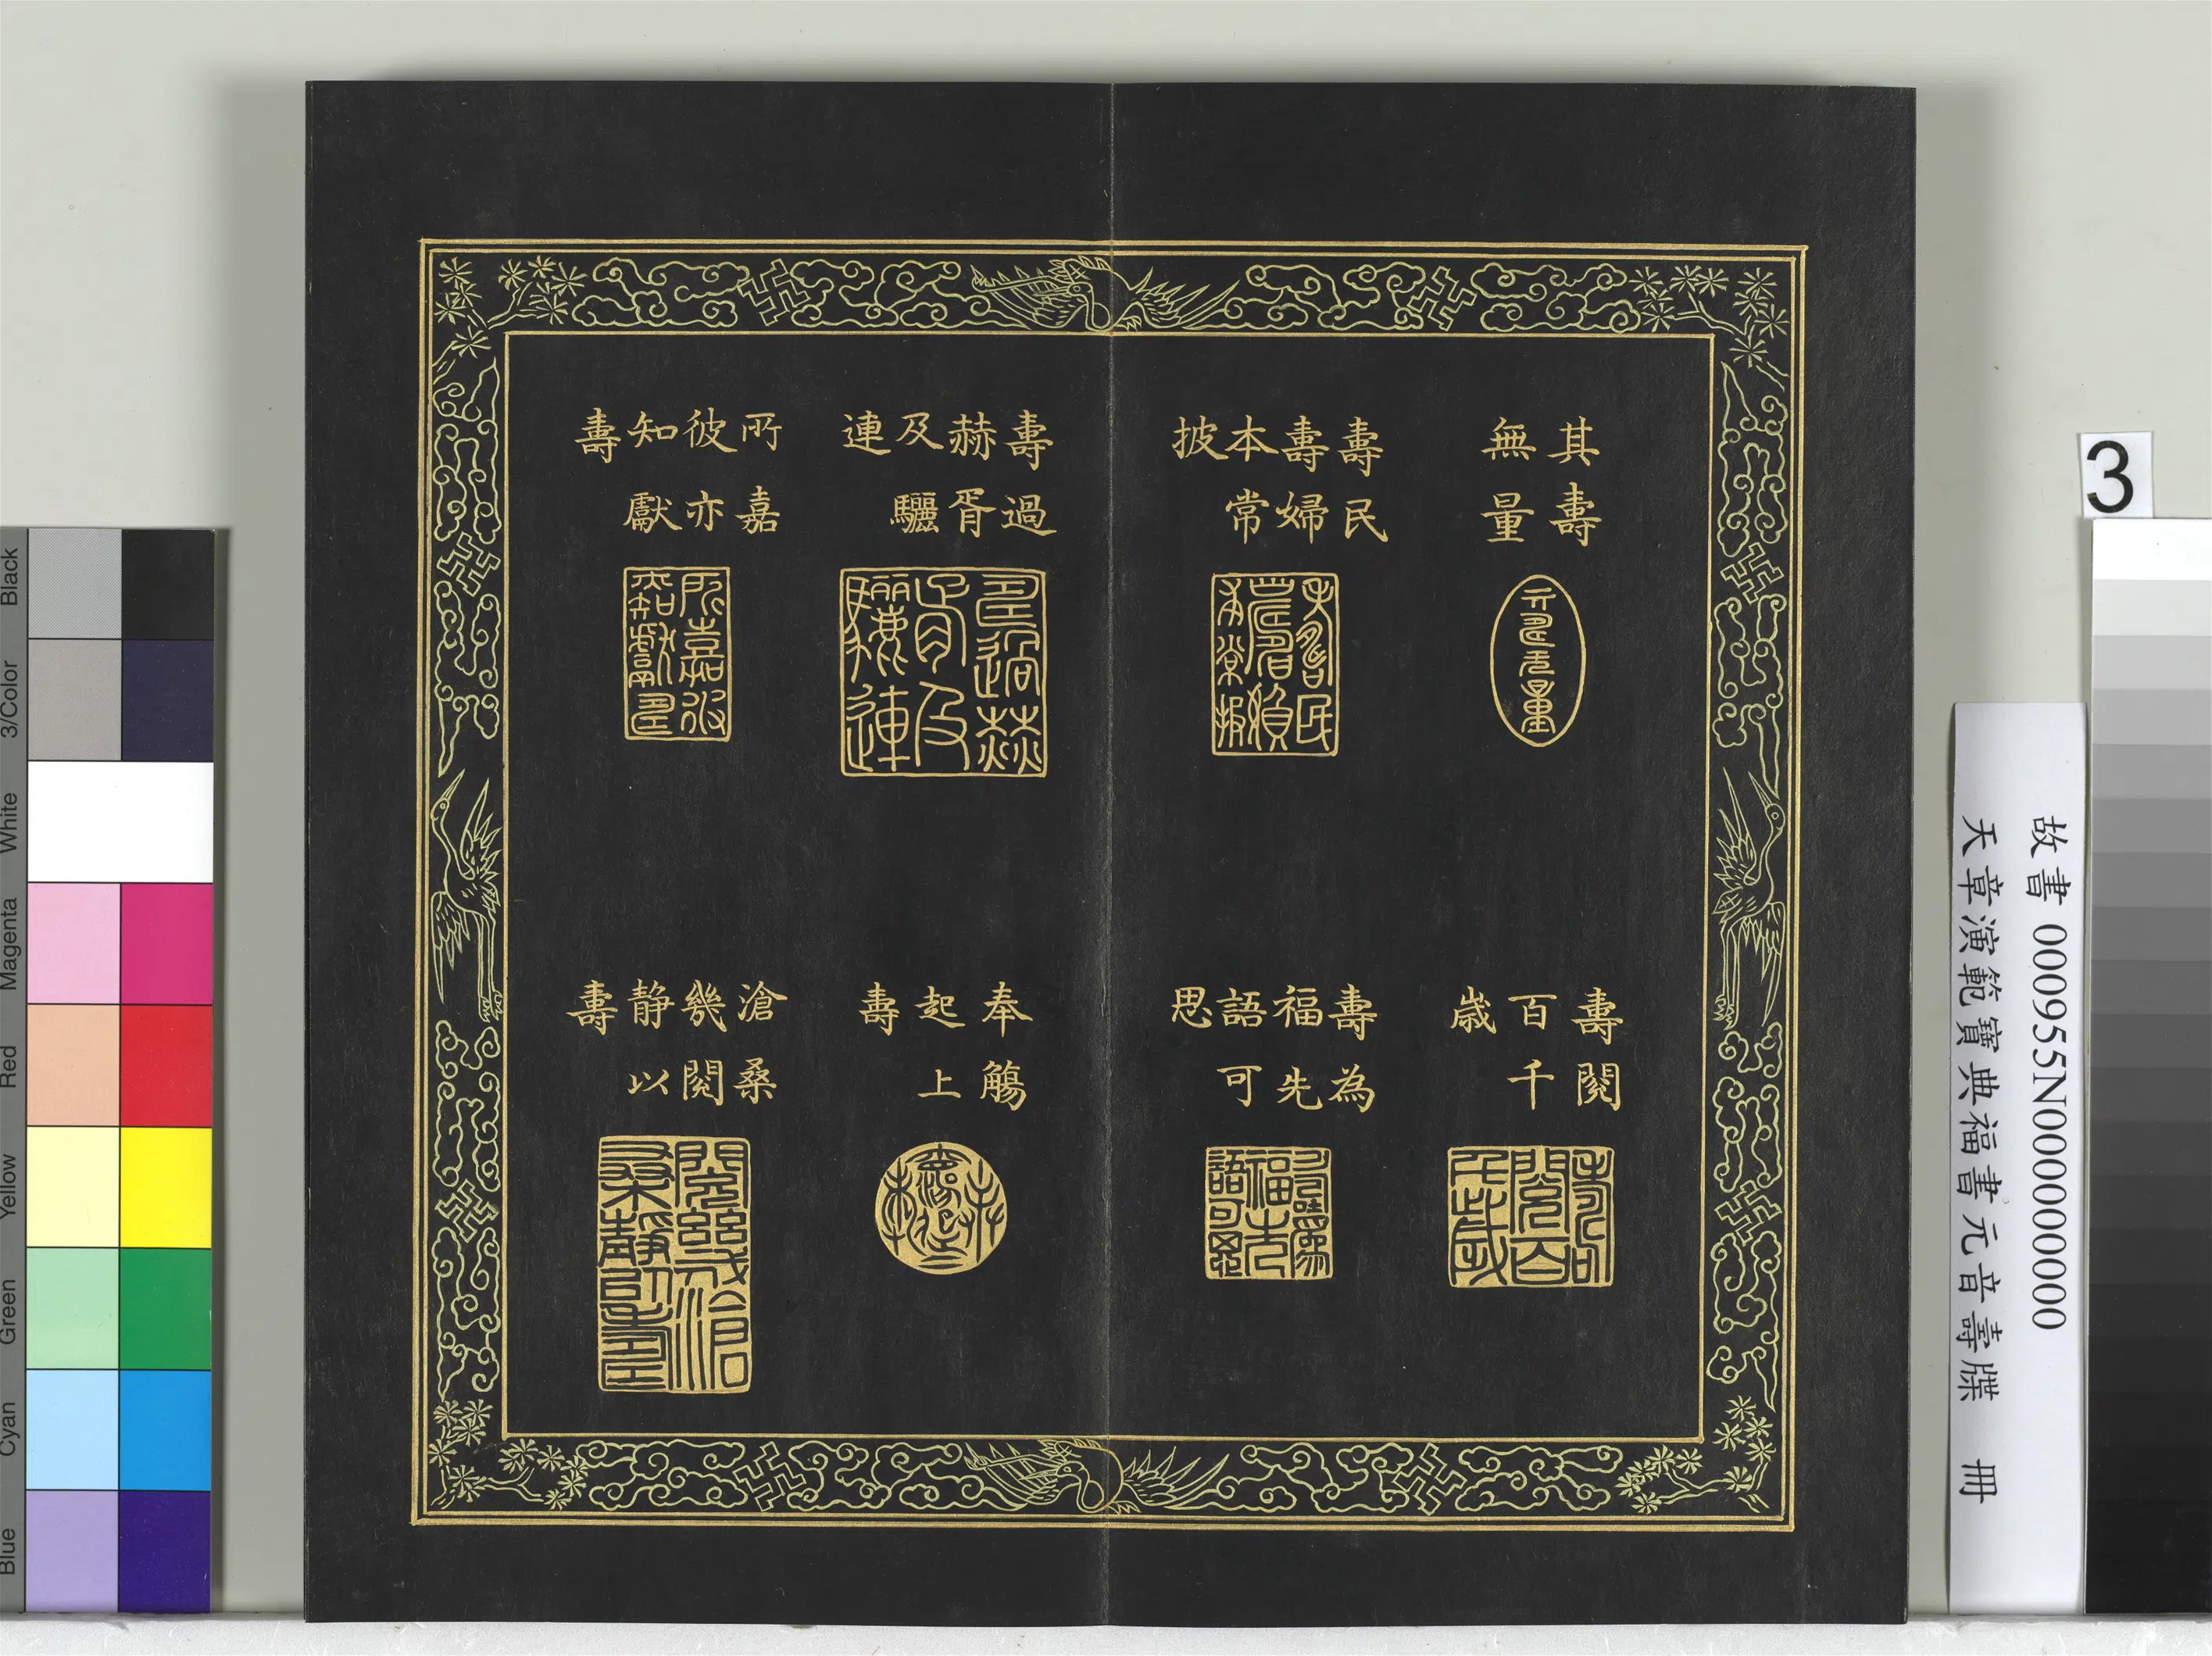 其壽
無量
壽民
壽婦
本常
披
壽過
赫胥
及驪
連
所嘉
彼亦
知獻
壽
壽閱
百千
歲
壽為
福先
語可
思
奉觴
起上
壽
滄桑
幾閱
静以
壽
3
故書 000955N000000000
天章演範寶典福書元音壽牒 冊
Black
3/Color
White
Magenta
Red
Yellow
Green
Cyan
Blue